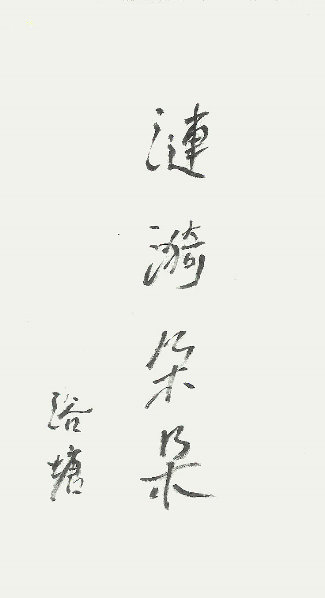 漣漪朵朵
浴塘